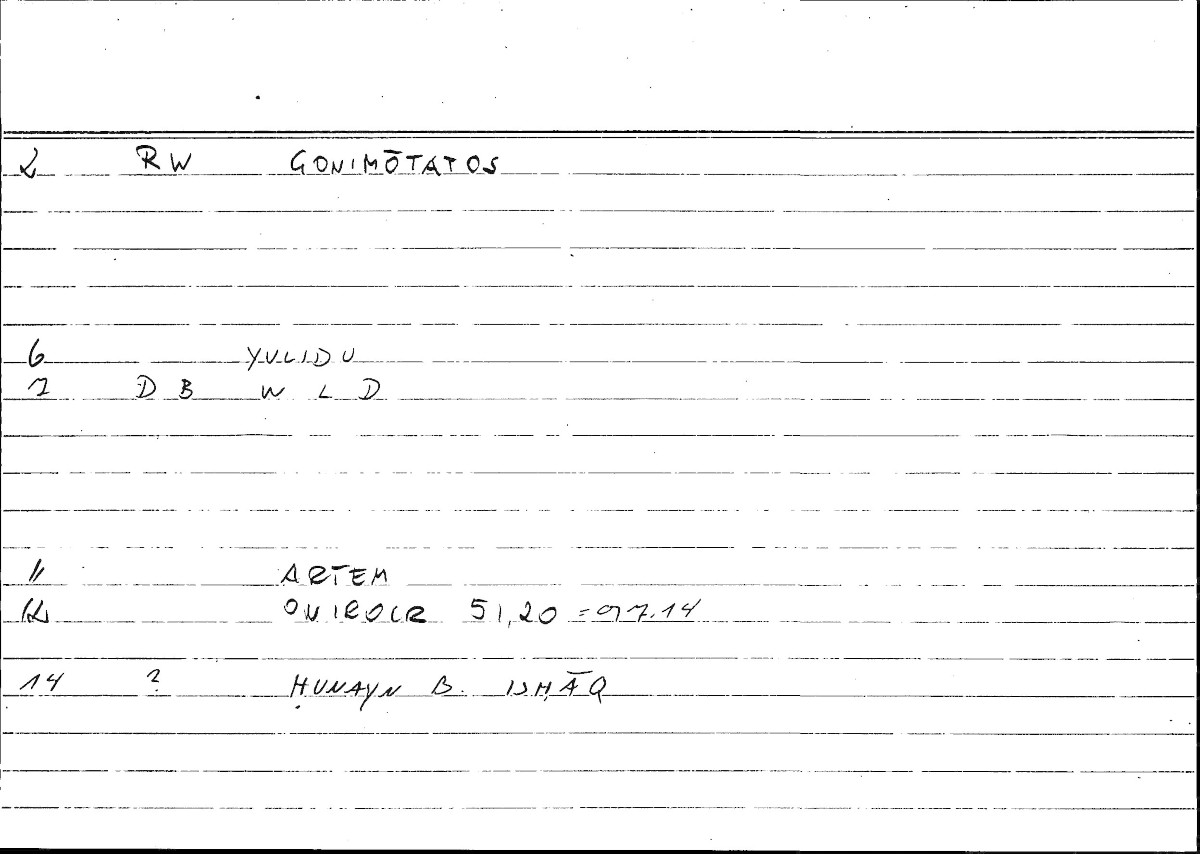 2 RW GONIMŌTATOS
6 YULIDU
7 DB W L D
11 ARTEM
12 ONIROCR 51,20 = 97.14
14 ? ḤUNAYN B. ISḤĀQ